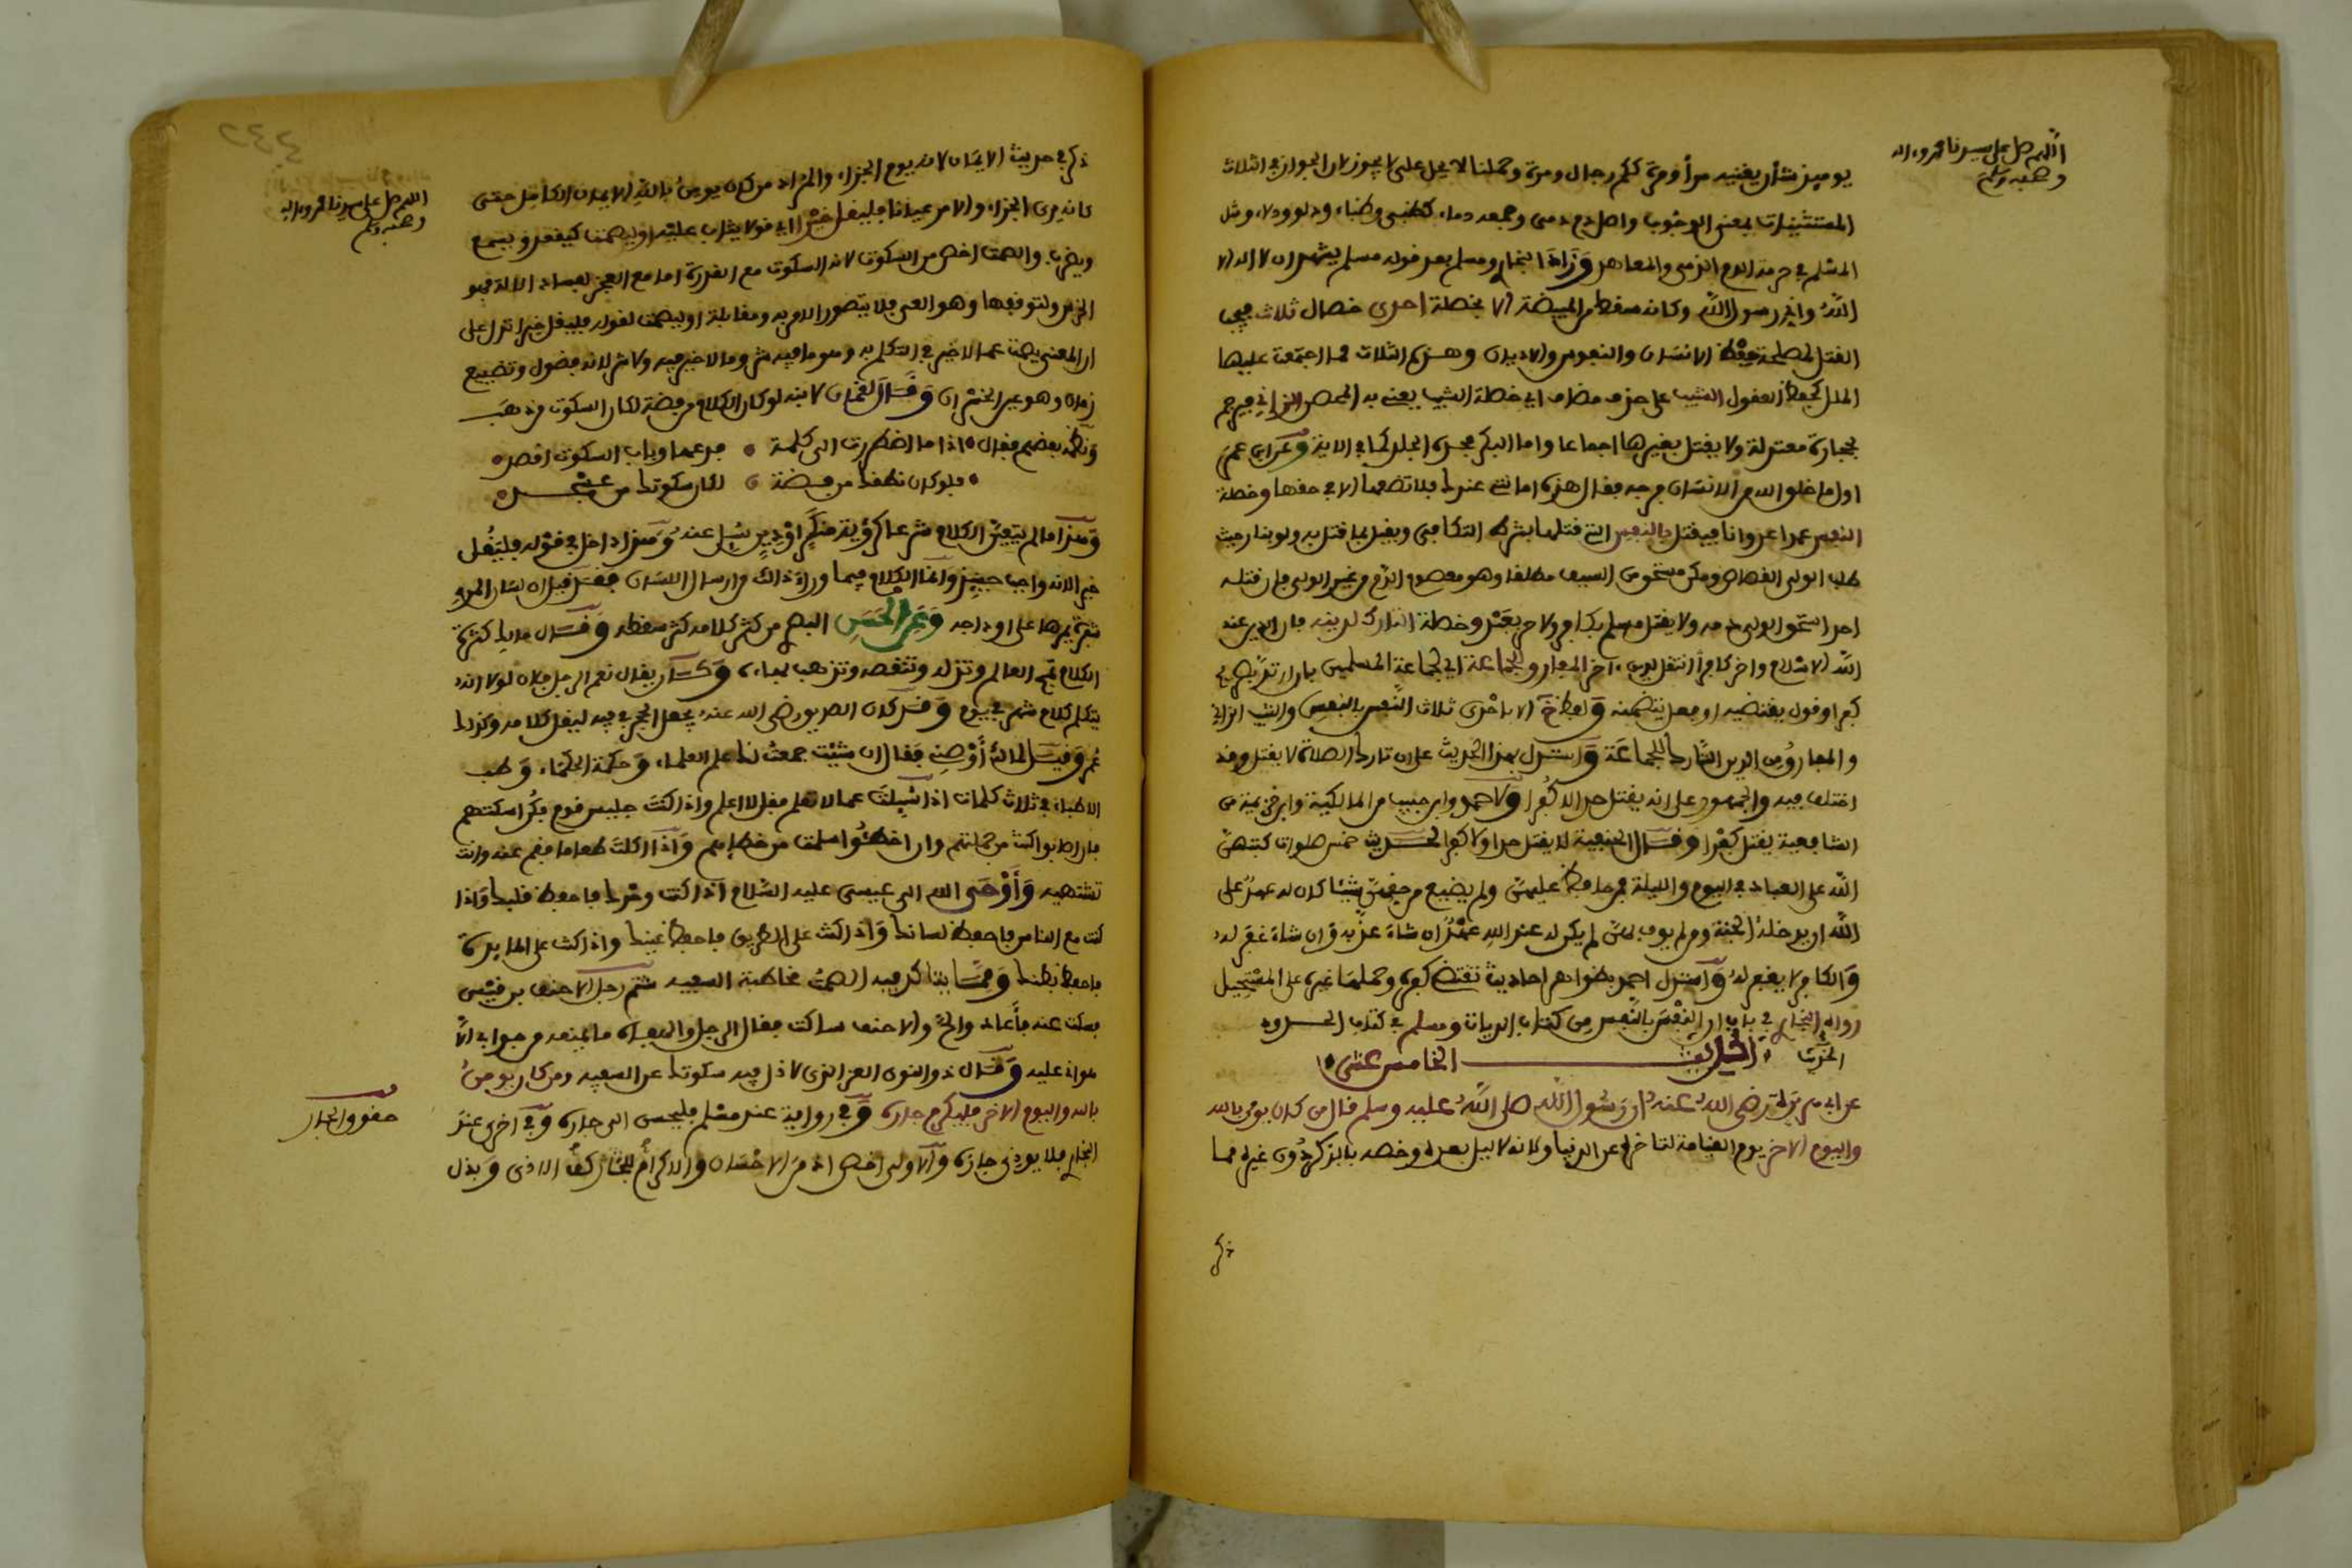 اللهم صل على سيدنا محمد وءاله
وصحبه وسلم
يوميذ شأن يغنيه مرأ ومرة ككم رجال ومرة وحملنا لا يحل على لا يجوز لان الجواز في الثلاث
المستثنيات بمعنى الوجوب واصل دم دمى وجمعه دماء كظبى وظباء ودلو ودلاء ومثل
المسلم في حرمة الدم الذمى والمعاهد وزاد البخارى ومسلم بعد قوله مسلم يشهد ان لا اله الا
الله وانى رسول الله وكانه سقط من المبيضة الا بخصلة احدى خصال ثلاث فيجب
القتل لمصلحة حفظ الانسان والنفوس والاديان وهذه الثلاث مما اجتمعت عليها
الملل كحفظ العقول الثيب على حذف مضاف اي خصلة الثيب يعنى به المحصن الزاني فيرجم
بحجارة معتدلة ولا يقتل بغيرها اجماعا واما البكر فحده الجلد كما في الاية وعن ابى عمر
اول ما خلق الله من الانسان فرجه فقال هذه امانتى عندك فلا تضعها الا في حقها وخصلة
النفس عمدا عدوانا فيقتل بالنفس التى قتلها بشرط التكافى ويقتل بما قتل به ولو بنار حيث
طلب الولى القصاص ومكن مستحق من السيف مطلقا وهو معصوم الدم من غير الولى فان قتله
احد استحق الولى دمه ولا يقتل مسلم بكافر ولا حر بعبد وخصلة التارك لدينه فان الدين عند
الله الاسلام واخر كافرا انتقل لدين ءاخر المفارق للجماعة اي لجماعة المسلمين بان ارتد بصريح
كفر او قول يقتضيه او فعل يتضمنه ولفظ خ الا باحدى ثلاث النفس بالنفس والثيب الزاني
والمفارق من الدين التارك للجماعة واستدل بهذا الحديث على ان تارك الصلاة لا يقتل وقد
اختلف فيه والجمهور على انه يقتل حدا لا كفرا ولاحمد وابن حبيب من المالكية وابن خزيمة من
الشافعية يقتل كفرا وقال الحنفية لا يقتل حدا ولا كفرا لحديث خمس صلوات كتبهن
الله على العباد في اليوم والليلة فمن حافظ عليهن ولم يضيع من حقهن شيئا كان له عهد على
الله ان يدخله الجنة ومن لم يوف بهن لم يكن له عند الله عهد ان شاء عذبه وان شاء غفر له
والكافر لا يغفر له واستدل احمد بظواهر احاديث تقتضى كفره وحملها غيره على المستحيل
رواه البخارى في باب ان النفس بالنفس من كتاب الديات ومسلم في كتاب الحدود
الحديث الحديث الخامس عشر
عن ابى هريرة رضى الله عنه ان رسول الله صلى الله عليه وسلم قال من كان يومن بالله
واليوم الاخر يوم القيامة لتاخره عن الدنيا ولانه لا ليل بعده وخصه بالذكر دون غيره مما
ذكر
اللهم صل على سيدنا محمد وءاله
وصحبه وسلم
ذكر في حديث الايمان لانه يوم الجزاء والمراد من كان يومن بالله الايمان الكامل حتى
كانه يرى الجزاء والامر عيانا فليقل خيرا اي قولا يثاب عليه او ليصمت كيقعد ويسمع
ويضرب والصمت اخص من السكوت لانه السكوت مع القدرة اما مع العجز لفساد الالة فهو
الخرس ولتوقفها وهو العى فلا يتصور الامر به ومقابلة او ليصمت لقوله فليقل خيرا تدل على
ان المعنى يصمت عما لا خير في التكلم به وهو ما فيه شر وما لا خير فيه ولا شر لانه فضول وتضييع
زمان وهو عين الخسران وقال لقمان لابنه لو كان الكلام من فضة لكان السكوت من ذهب
ونظمه بعضهم فقال اذا ما اضطررت الى كلمة فدعها وباب السكوت اقصد
فلو كان نطقك من فضة لكان سكوتك من عسجد
وهذا ما لم يتعين الكلام شرعا كرؤية منكر او دين سئل عنه وهذا داخل في قوله فليقل
خيرا لانه واجب حينئذ وانما الكلام فيما وراء ذلك وارسال اللسان فقد قيل ان لسان المرء
شفرة يمرها على اوداجه وعن الحسن البصرى من كثر كلامه كثر سقطه وقال مالك كثرة
الكلام تمج العالم وتزله وتنقصه وتذهب ببهاءه وكان يقال نعم الرجل فلان لولا انه
يتكلم كلام شهر في يوم وقد كان الصديق رضى الله عنه يجعل الحجر في فيه ليقل كلامه وكذلك
عمر وقيل لمالك أوصنى فقال ان شئت جمعت لك علم العلماء وحكمة الحكماء وطب
الاطباء في ثلاث كلمات اذا سيلت عما لا تعلم فقل لا اعلم واذا كنت جليس قوم فكن اسكتهم
فان اصابوا كنت من جملتهم وان اخطئوا سلمت من خطإهم واذا اكلت طعاما فقم عنه وانت
تشتهيه وأوحى الله الى عيسى عليه السلام اذا كنت وحدك فاحفظ قلبك واذا
كنت مع الناس فاحفظ لسانك واذا كنت على الطريق فاحفظ عينك واذا كنت على المايدة
فاحفظ بطنك ومما يتاكد فيه الصمت مخاطبة السفيه شتم رجل الاحنف بن قيس
فسكت عنه فأعاد والح والاحنف ساكت فقال الرجل والهفاه ما يمنعه من جوابى الا
هوانى عليه وقال ذو النون العز الذى لا ذل فيه سكوتك عن السفيه ومن كان يومن
بالله واليوم الاخر فليكرم جاره وفي رواية عند مسلم فليحسن الى جاره وفي اخرى عند
البخارى فلا يوذى جاره والاولى اخص اذ من الاحسان والاكرام للجار كف الاذى وبذل
حقوق الجار